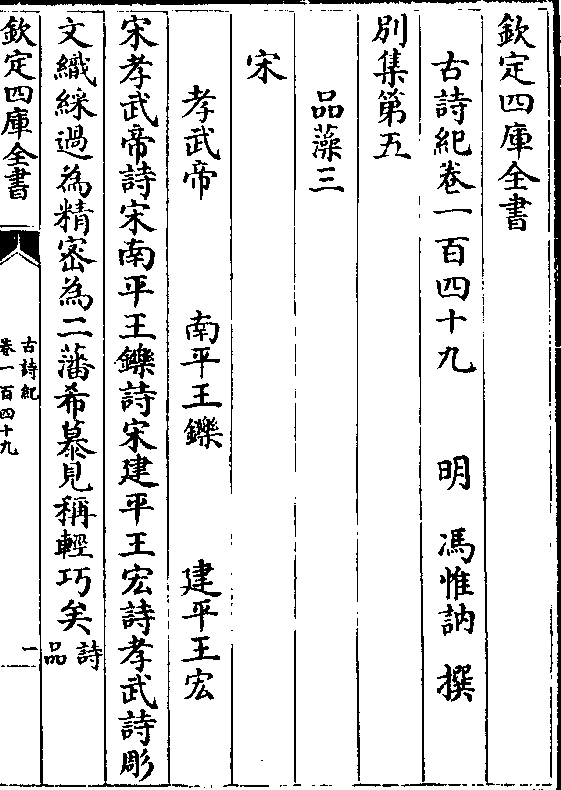 欽定四庫全書
古詩紀卷一百四十九 明 馮惟訥 撰
別集第五
品藻三
宋
孝武帝 南平王鑠 建平王宏
宋孝武帝詩宋南平王鑠詩宋建平王宏詩孝武詩彫
文織綵過為精密為二藩希慕見稱輕巧矣詩品
欽定四庫全書
古詩紀
卷一百四十九
一